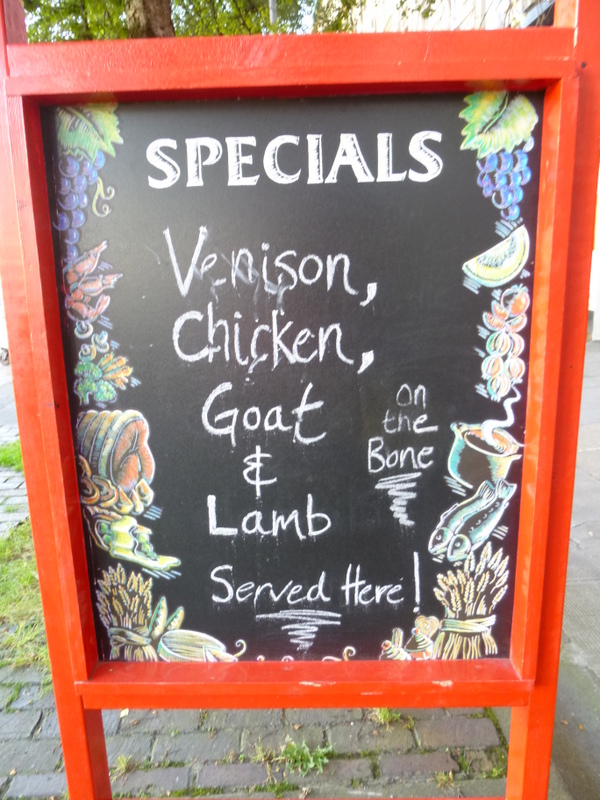 SPECIALS
Venison,
Chicken,
Goat
&
Lamb
on
the
Bone
Served Here!